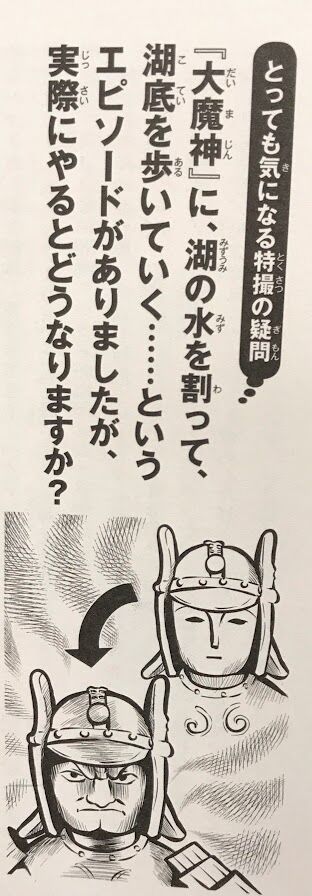 とっても気になる特撮の疑問
『大魔神』に、湖の水を割って、
湖底を歩いていく……という
エピソードがありましたが、
実際にやるとどうなりますか？